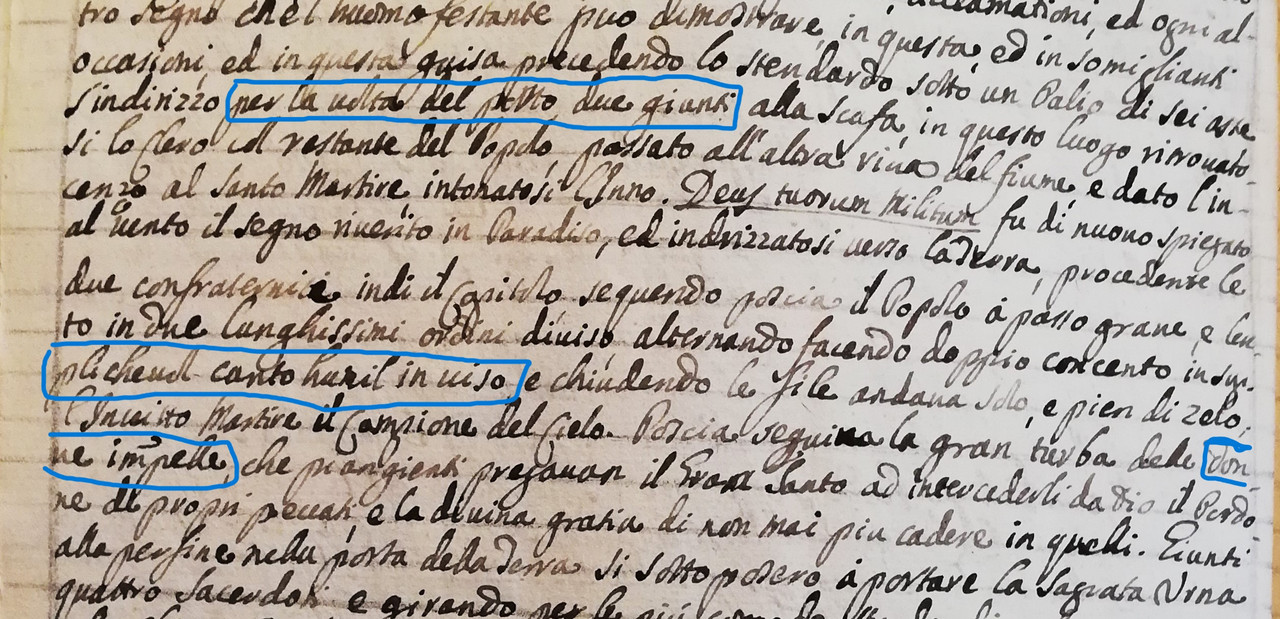 tro segno che l huomo festante può dimostrare, in questa, ed in somiglianti
acclamationi, ed ogni al-
occasioni, ed in questa guisa precedendo lo stendardo sotto un Palio di sei aste
s'indirizzo per la volta del porto due giunti alla scafa, in questo luogo ritrouato-
si lo Clero col restante del Popolo, passato all'altra riua del fiume, e dato l'in-
cenzo al Santo Martire, intonatosi l'Inno. Deus tuorum Militum fu di nuouo spiegato
al uento il segno riuerito in Paradiso, ed indrizzatosi uerzo la Terra, procedente le
due confraternite, indi il Capitolo sequendo poscia il Popolo à passo graue, e len-
to in due lunghissimi ordini diuiso, alternando facendo doppio concento in sup-
plicheuol canto humil in uiso, e chiudendo le file andaua solo, e pien di zelo,
l'Inuitto Martire il Campione del Cielo. Poscia seguiua la gran turba delle don
ne impelle, che piangienti pregauan il Gran Santo ad intercederli da Dio il Perdo-
ne de proprij peccati, e la diuina gratia di non mai piu cadere in quelli. Giunti
alla perfine nella porta della Terra si sottoposero à portare la Sagrata Urna
quattro Sacerdoti e girando per le più